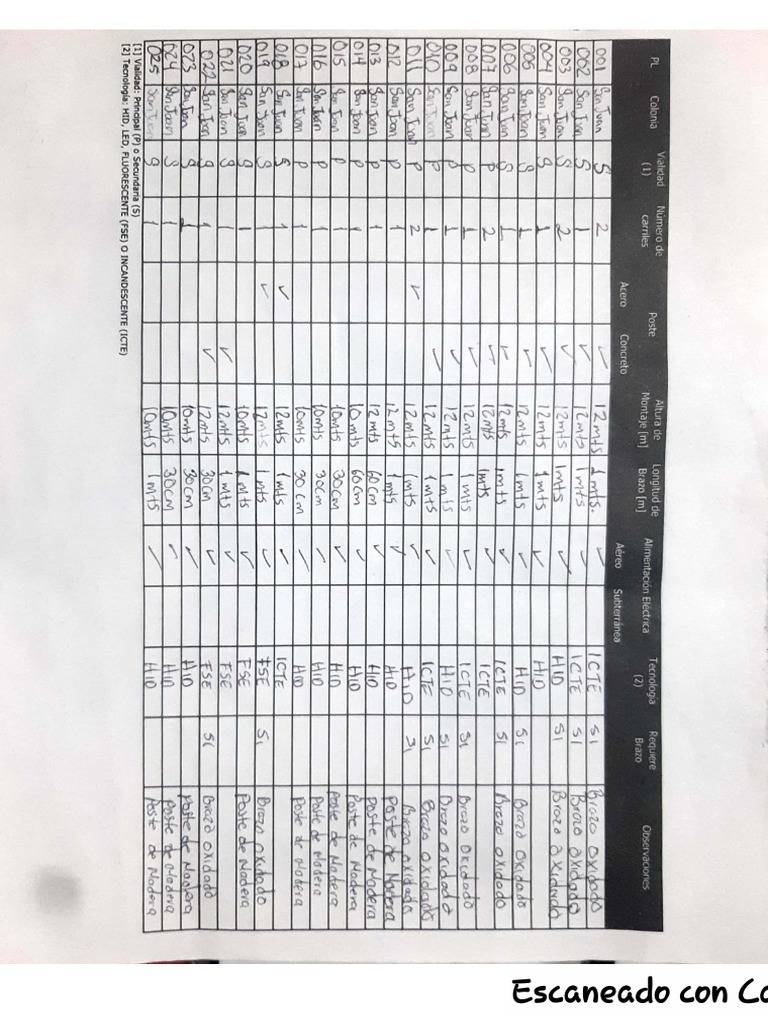 PL Colonia Vialidad (1) Número de carriles Poste Acero Concreto Altura de Montaje [m] Longitud de Brazo [m] Alimentación Eléctrica Aéreo Subterránea Tecnología (2) Requiere Brazo Observaciones
001 San Juan S 2 ✓ 12 mts 1 mts. ✓ ICTE Si Brazo oxidado
002 San Juan S 1 ✓ 12 mts 1 mts ✓ ICTE Si Brazo oxidado
003 San Juan S 2 ✓ 12 mts 1 mts ✓ HID Si Brazo oxidado
004 San Juan S 1 ✓ 12 mts 1 mts ✓ HID
005 San Juan S 1 ✓ 12 mts 1 mts ✓ HID Si Brazo oxidado
006 San Juan S 1 ✓ 12 mts 1 mts ✓ ICTE Si Brazo oxidado
007 San Juan P 2 ✓ 12 mts 1 mts ✓ ICTE
008 San Juan P 1 ✓ 12 mts 1 mts ✓ ICTE Si Brazo oxidado
009 San Juan P 1 ✓ 12 mts 1 mts ✓ HID Si Brazo oxidado
010 San Juan P 1 ✓ 12 mts 1 mts ✓ ICTE Si Brazo oxidado
011 San Juan P 2 ✓ 12 mts 1 mts ✓ HID Si Brazo oxidado
012 San Juan P 1 12 mts 1 mts ✓ HID Poste de Madera
013 San Juan P 1 12 mts 60 cm ✓ HID Poste de Madera
014 San Juan P 1 10 mts 60 cm ✓ HID Poste de Madera
015 San Juan P 1 10 mts 30 cm ✓ HID Poste de Madera
016 San Juan P 1 10 mts 30 cm ✓ HID Poste de Madera
017 San Juan P 1 10 mts 30 cm ✓ HID Poste de Madera
018 San Juan S 1 ✓ 12 mts 1 mts ✓ ICTE
019 San Juan S 1 ✓ 12 mts 1 mts ✓ FSE Si Brazo oxidado
020 San Juan S 1 10 mts 1 mts ✓ FSE Poste de Madera
021 San Juan S 1 ✓ 12 mts 1 mts ✓ FSE
022 San Juan S 1 ✓ 12 mts 30 cm ✓ FSE Si Brazo oxidado
023 San Juan S 1 10 mts 30 cm ✓ HID Poste de Madera
024 San Juan S 1 10 mts 30 cm ✓ HID Poste de Madera
025 San Juan S 1 10 mts 1 mts ✓ HID Poste de Madera
(1) Vialidad: Principal (P) o Secundaria (S)
(2) Tecnología: HID, LED, FLUORESCENTE (FSE) O INCANDESCENTE (ICTE)
Escaneado con Ca